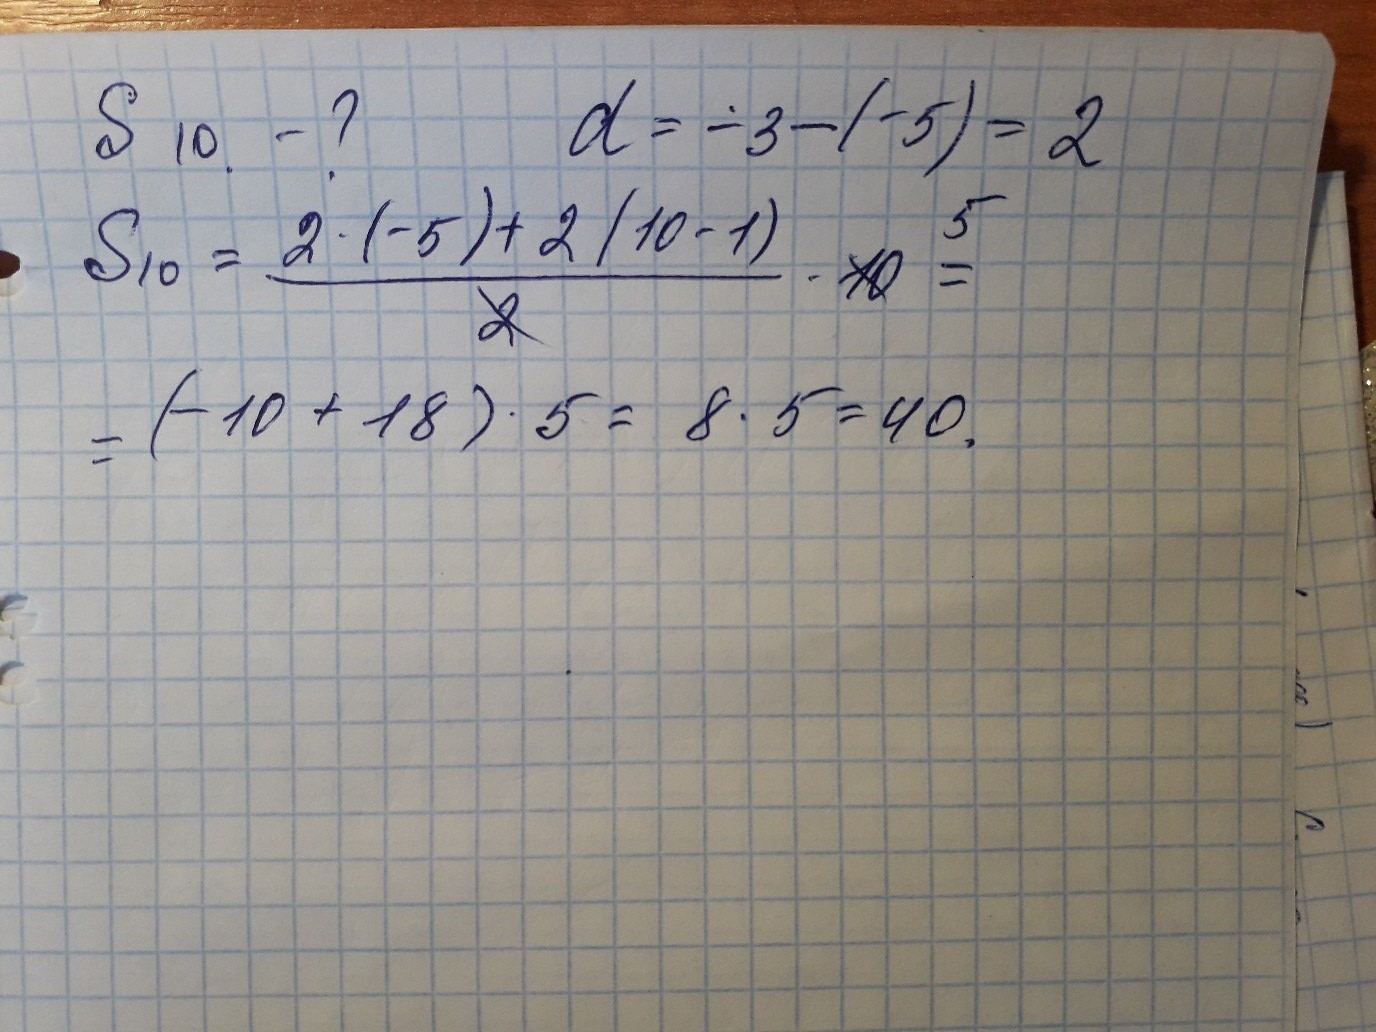 S₁₀. - ? d = -3 - (-5) = 2
S₁₀ = (2·(-5) + 2(10 - 1)) / 2 · 10 5 =
= (-10 + 18) · 5 = 8 · 5 = 40.